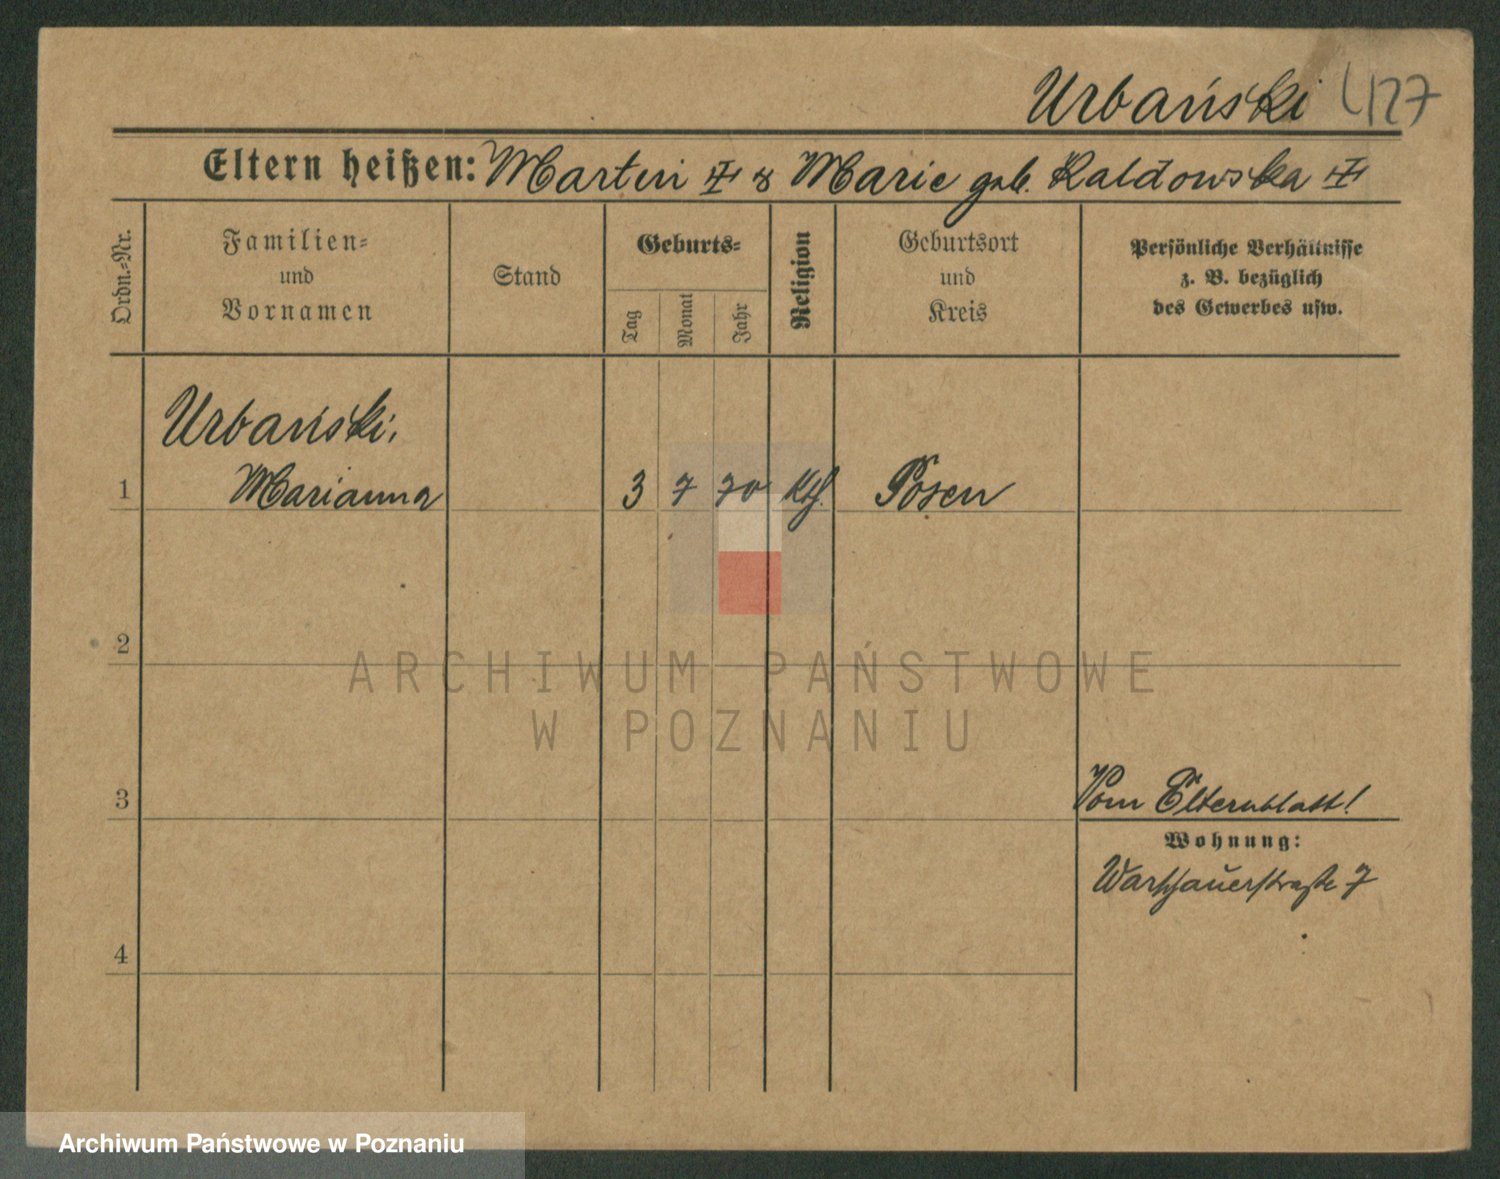 Urbański 427
Eltern heißen: Martin & Marie geb. Kaldowska
Ordn.-Nr.
Familien-
und
Vornamen
Stand
Geburts-
Tag
Monat
Jahr
Religion
Geburtsort
und
Kreis
Persönliche Verhältnisse
z. B. bezüglich
des Gewerbes usw.
Urbański,
1 Marianna 3 7 70 kth. Posen
2
ARCHIWUM PAŃSTWOWE
W POZNANIU
3
Vom Elternblatt!
Wohnung:
Warschauerstraße 7
4
Archiwum Państwowe w Poznaniu